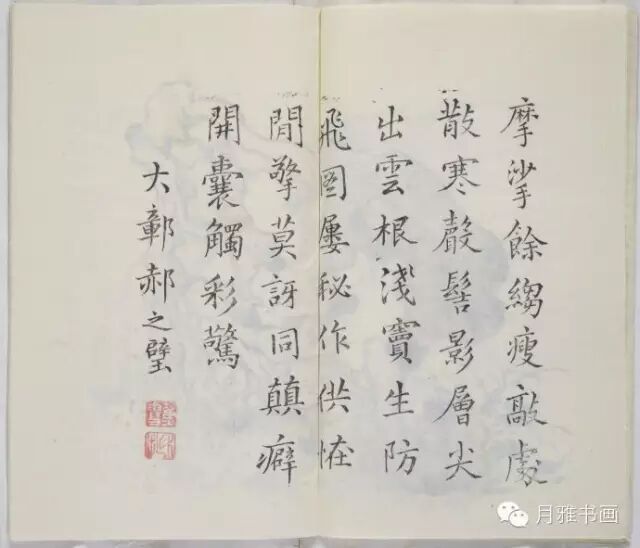 摩挲餘縐瘦敲處
散寒聲髻影層尖
出雲根淺竇生防
飛圖屢秘作供恠
閒擎莫訝同顛癖
開囊觸彩驚
大鄣郝之璧
月雅书画